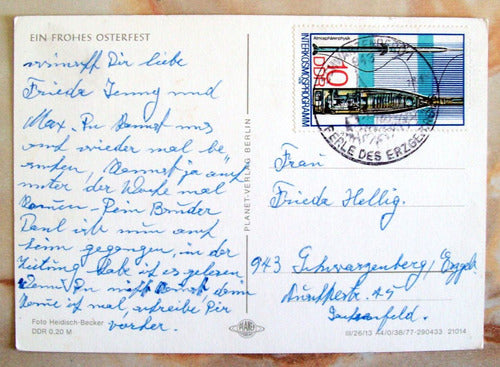 EIN FROHES OSTERFEST
wünscht Dir liebe
Frieda Jenny und
Max. Du kannst uns
mal wieder mal be=
suchen, kannst ja auf
unter der Woche mal
Dein Bruder
Paul ist nun auf
heim gegangen, in der
Zeitung habe ich es gelesen
Wenn Du nicht kannst, dann
komme ich mal, schreibe Dir
vorher.
Foto Heidisch-Becker
DDR 0,20 M
PLANET-VERLAG BERLIN
PLANET
Atmosphärenphysik
INTERKOSMOSPROGRAMM
DDR
10
PERLE DES ERZGEB
Frau
Frieda Hellig.
943 Schwarzenberg/Erzgeb
45
Sachsenfeld.
III/26/13 A4/0/38/77-290433 21014